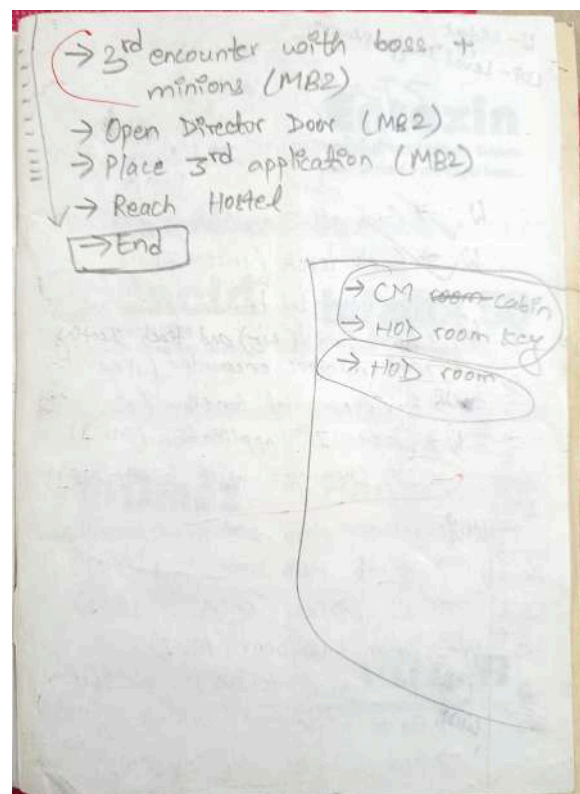 → 3rd encounter with boss +
minions (MB2)
→ Open Director Door (MB2)
→ Place 3rd application (MB2)
→ Reach Hostel
→ End
→ CM room cabin
→ HOD room key
→ HOD room